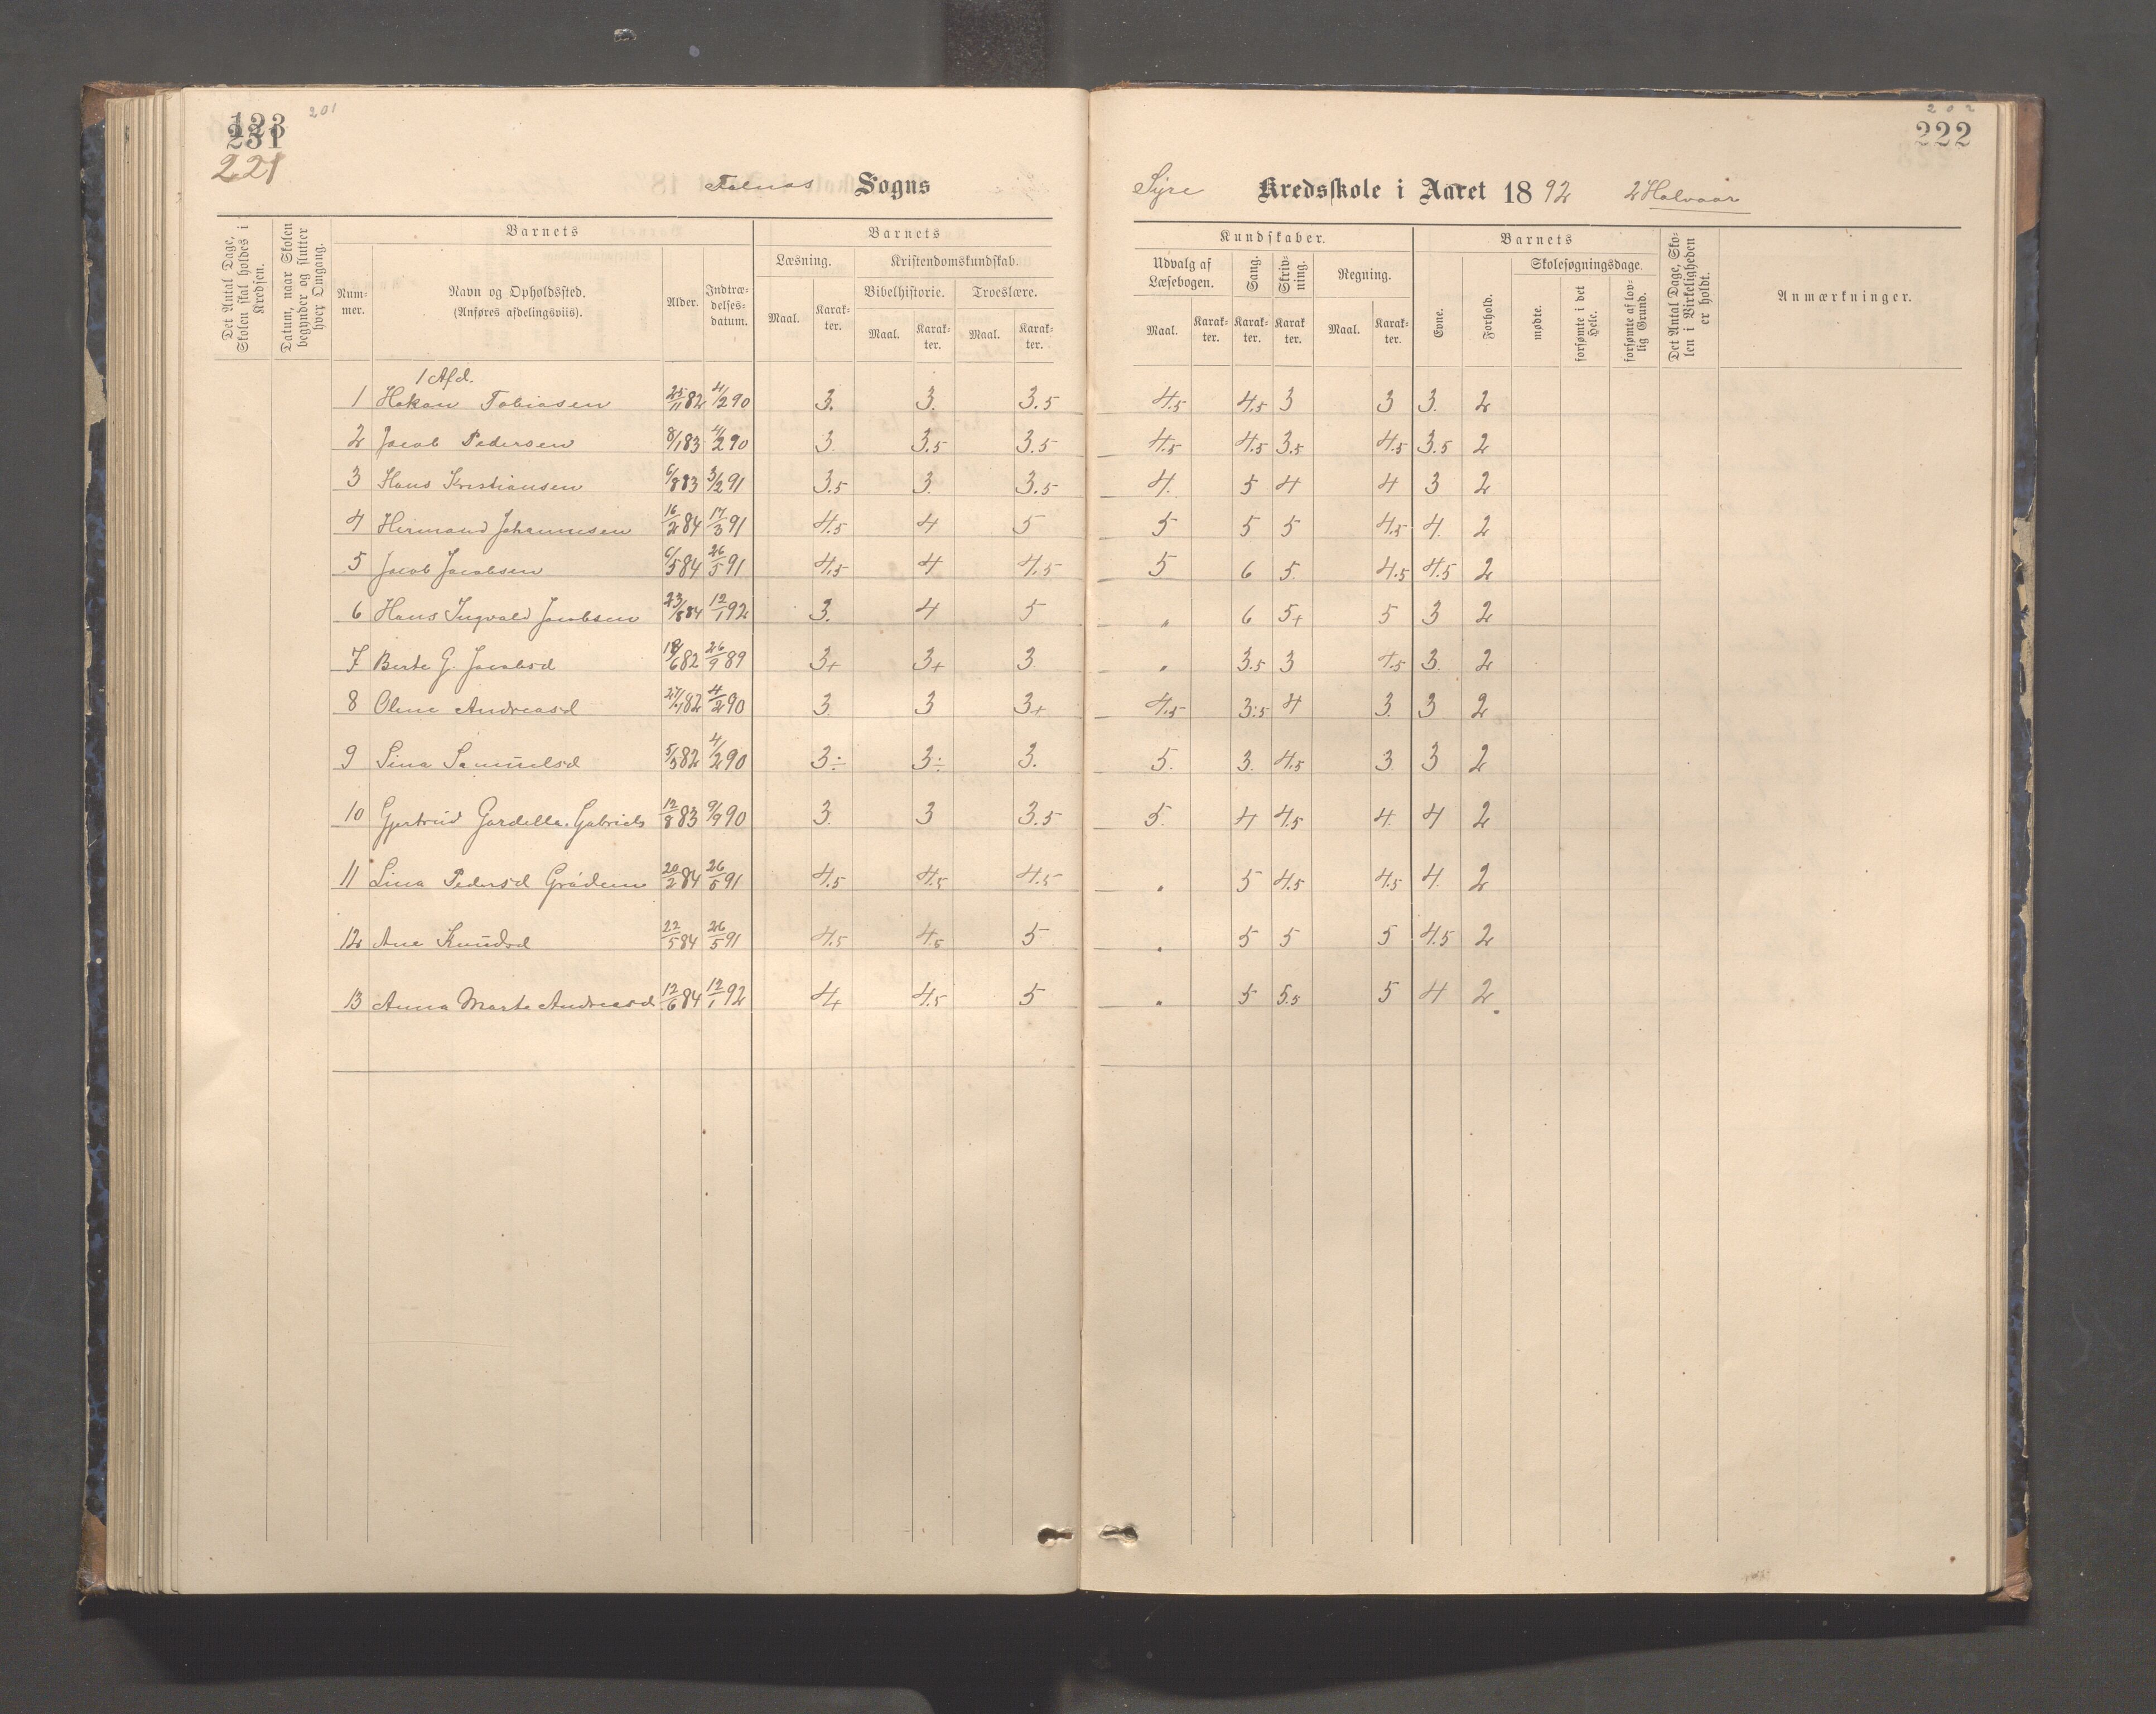 201
123
231
221
Falnas Sogns
Det Antal Dage, Skolen skal holdes i Kredsen.
Datum, naar Skolen begynder og slutter hver Omgang.
Barnets
Barnets
Num-mer.
Navn og Opholdssted.
(Anføres afdelingsviis).
Alder.
Indtræ-delses-datum.
Læsning.
Kristendomskundskab.
Bibelhistorie.
Troeslære.
Maal. Karak-ter. Maal. Karak-ter. Maal. Karak-ter.
1 Afd.
1 Hakon Tobiasen 25/11 82 4/2 90 3. 3. 3.5
2 Jacob Pedersen 8/1 83 4/2 90 3 3.5 3.5
3 Hans Kristiansen 6/8 83 3/2 91 3.5 3 3.5
4 Hermand Johannesen 16/2 84 17/3 91 4.5 4 5
5 Jacob Jacobsen 6/5 84 26/5 91 4.5 4 4.5
6 Hans Ingvald Jacobsen 23/8 84 12/1 92 3. 4 5
7 Berte G. Jacobsd 6 82 26/9 89 3+ 3+ 3
8 Oline Andreasd 82 4/2 90 3 3 3+
9 Sina Samuelsd 82 4/2 90 3÷ 3÷ 3.
10 Gjertrud Gardella. Gabriels 12/8 83 9/9 90 3. 3 3.5
11 Lina Pedersd Grådem 20/2 84 26/5 91 4.5 4.5 4.5
12 Ane Knudsd 22/5 84 26/5 91 4.5 4.5 5
13 Anna Marta Andreasd 12/6 84 12/1 92 4+ 4.5 5
202
222
Syre Kredsskole i Aaret 1892 2 Halvaar
Kundskaber.
Barnets
Udvalg af Læsebogen.
Sang.
Skriv-ning.
Regning.
Evne.
Forhold.
Skolesøgningsdage.
mødte.
forsømte i det Hele.
forsømte af lov-lig Grund.
Det Antal Dage, Sko-len i Virkeligheden er holdt.
Anmærkninger.
Maal. Karak-ter. Karak-ter. Karak ter. Maal. Karak-ter.
4.5 4.5 3 3 3. 2
4.5 4.5 3.5 4.5 3.5 2
4. 5 4 4 3 2
5 5 5 4.5 4. 2
5 6 5. 4.5 4.5 2
" 6 5+ 5 3 2
" 3.5 3 4.5 3. 2
4.5 3.5 4 3. 3 2
5. 3. 4.5 3 3 2
5. 4 4.5 4. 4 2
" 5 4.5 4.5 4. 2
" 5 5 5 4.5 2
" 5 5.5 5 4 2